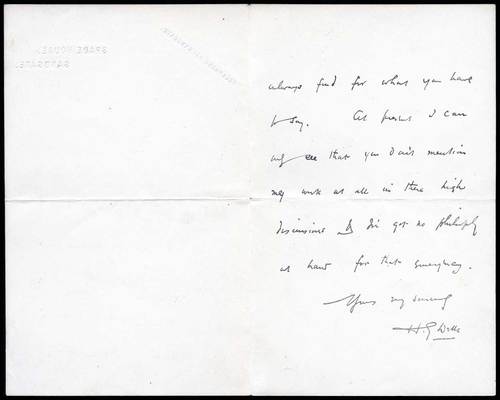 SPADE HOUSE,
SANDGATE.
always find for what you have
to say. At present I can
only see that you don't mention
my work at all in these high
discussions & I've got no philosophy
at hand for that emergency.
Yours very sincerely
H.G. Wells